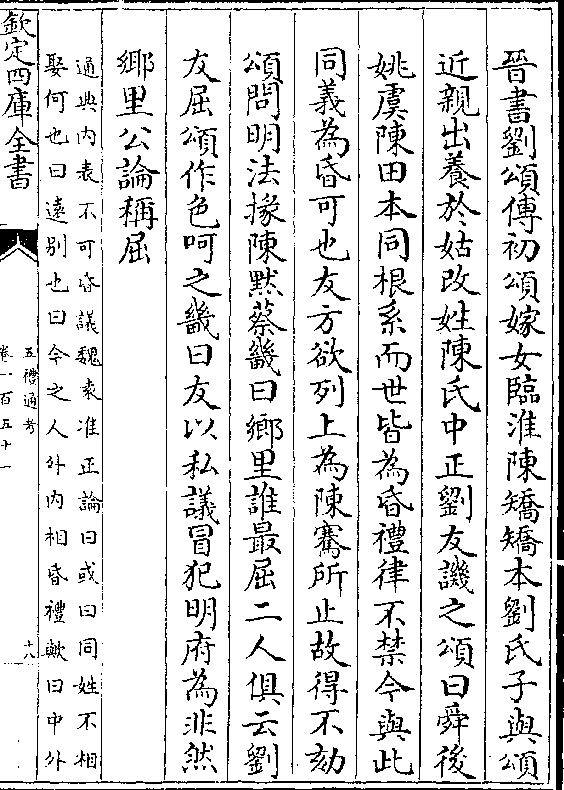 晉書劉頌傳初頌嫁女臨淮陳矯矯本劉氏子與頌
近親出養於姑改姓陳氏中正劉友譏之頌曰舜後
姚虞陳田本同根系而世皆為昏禮律不禁今與此
同義為昏可也友方欲列上為陳騫所止故得不劾
頌問明法掾陳黙蔡畿曰鄉里誰最屈二人俱云劉
友屈頌作色呵之畿曰友以私議冒犯明府為非然
鄉里公論稱屈
通典内表不可昏議魏袁准正論曰或曰同姓不相
娶何也曰逺别也曰今之人外内相昏禮歟曰中外
欽定四庫全書
五禮通考
卷一百五十一
十八